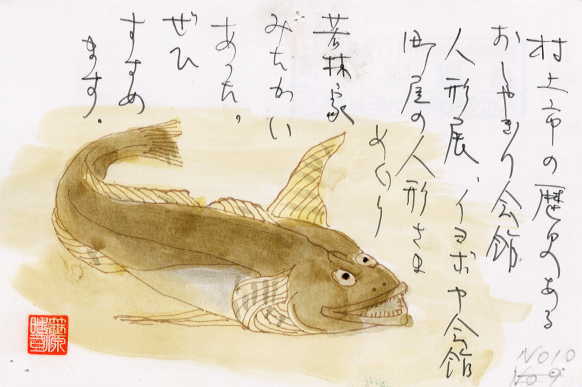 村上市の歴史ある
おしゃぎり会館
人形展、イヨボヤ会館
町屋の人形さま
めぐり
若林家
みちかい
あった。
ぜひ
すすめ
ます。
NO10